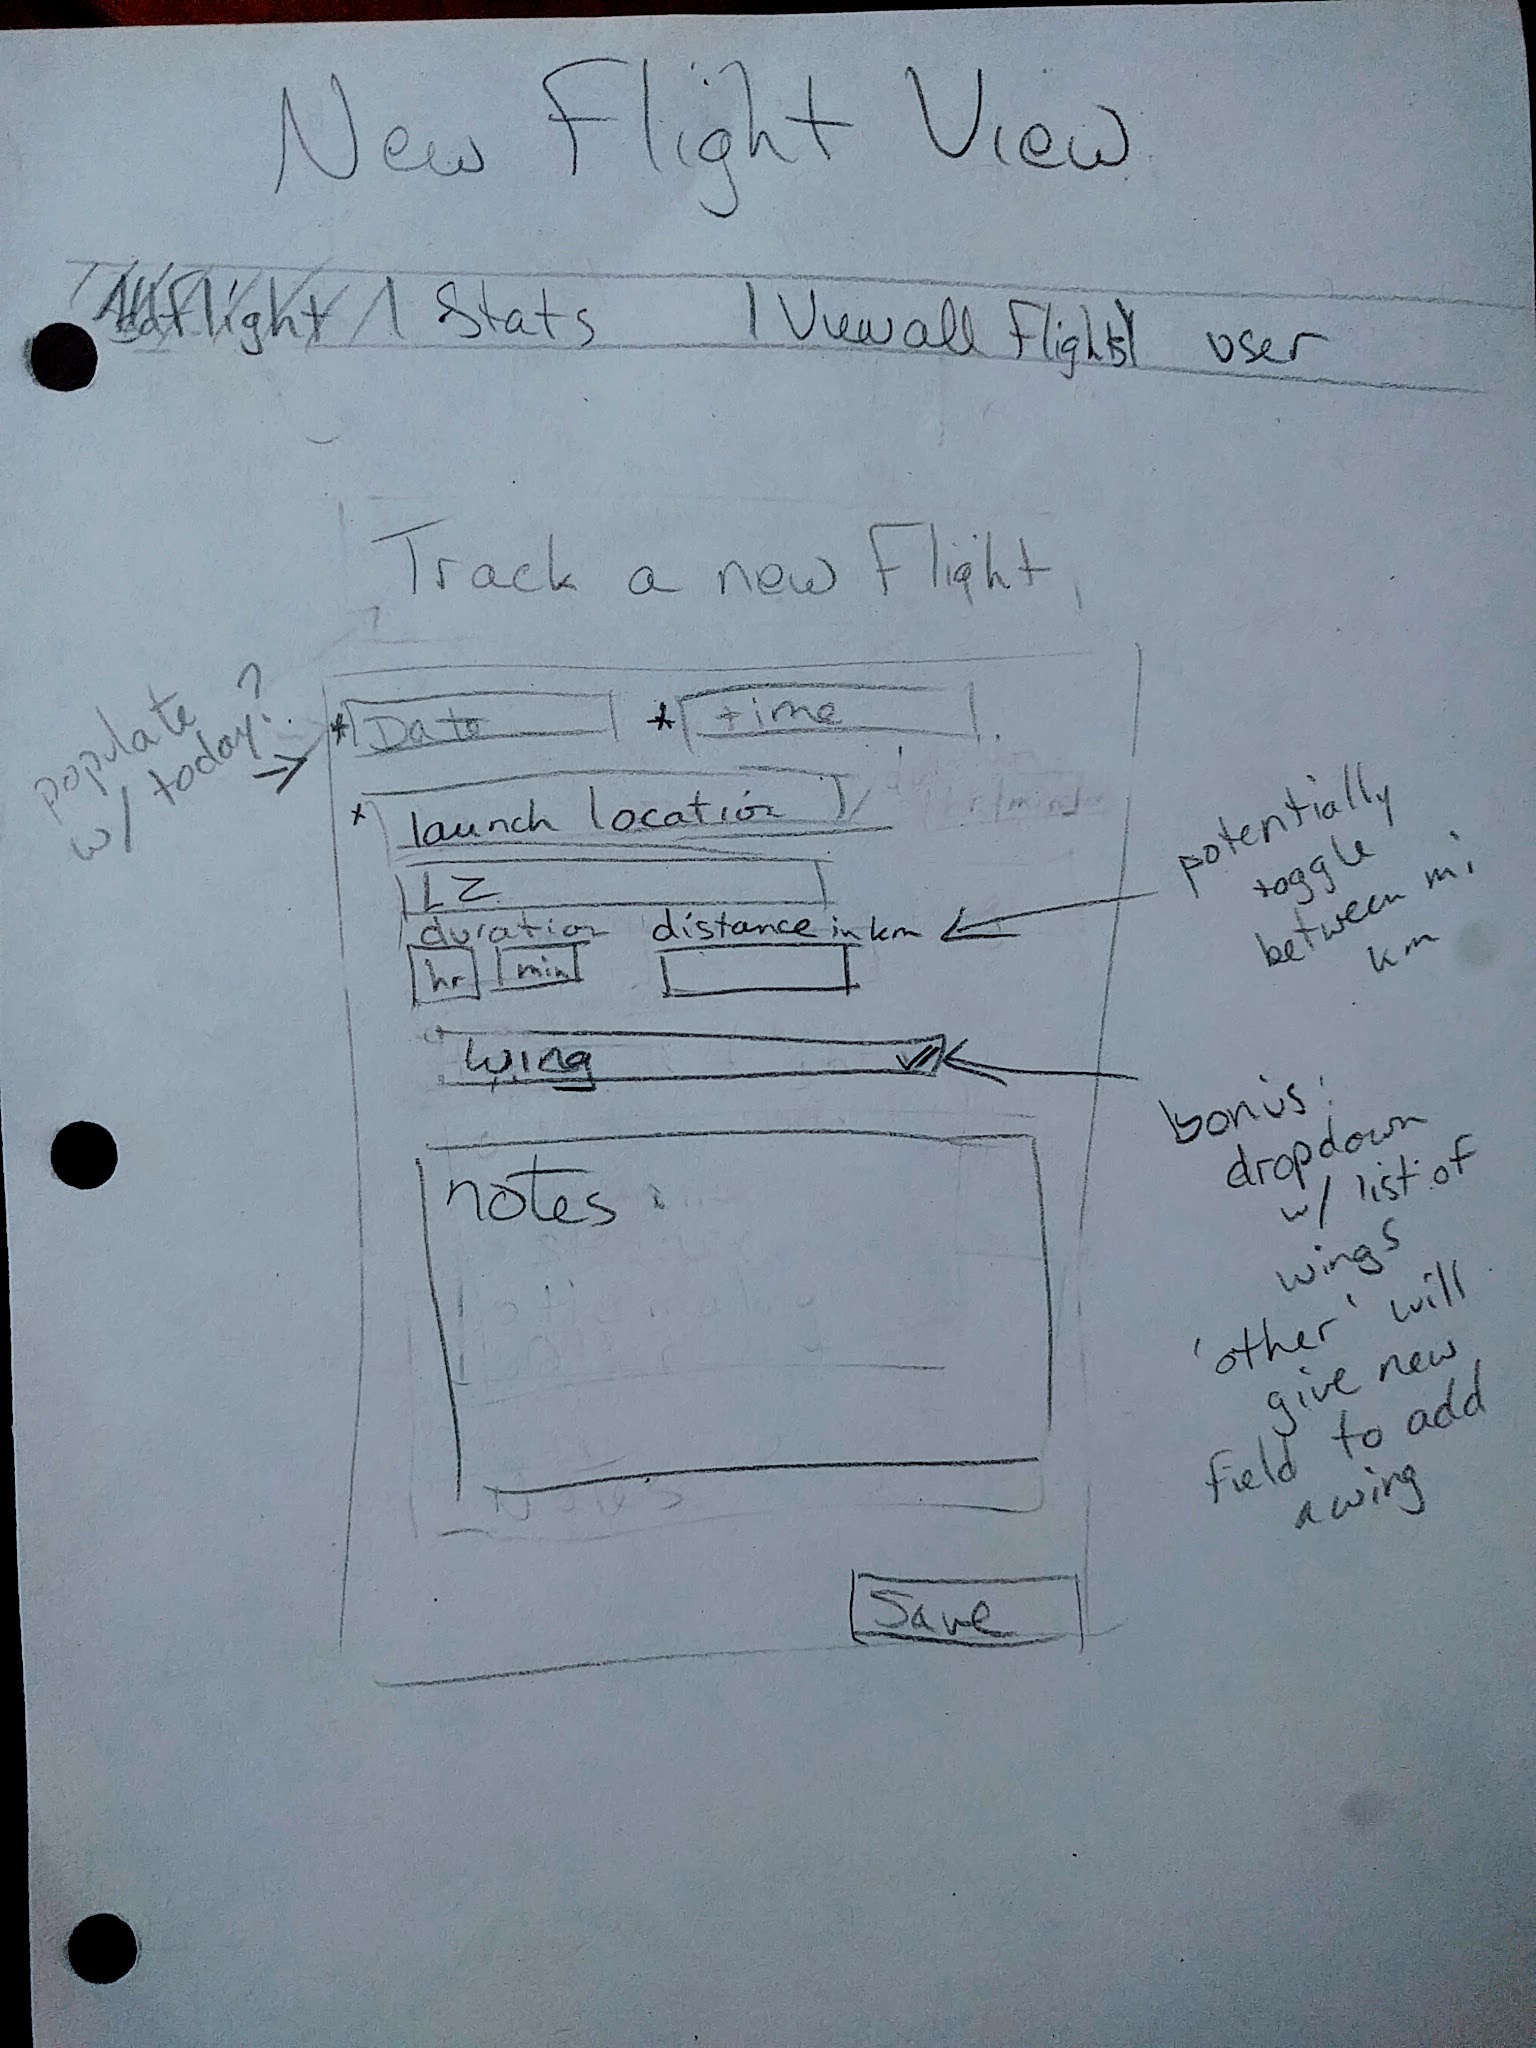 New Flight View
Add Flight | Stats | View all Flights | user
Track a new Flight
populate
w/ today?
* Date * time
* launch location
LZ
duration distance in km
hr min
potentially
toggle
between mi
km
wing
bonus:
dropdown
w/ list of
wings
'other' will
give new
field to add
a wing
notes:
Notes
Save